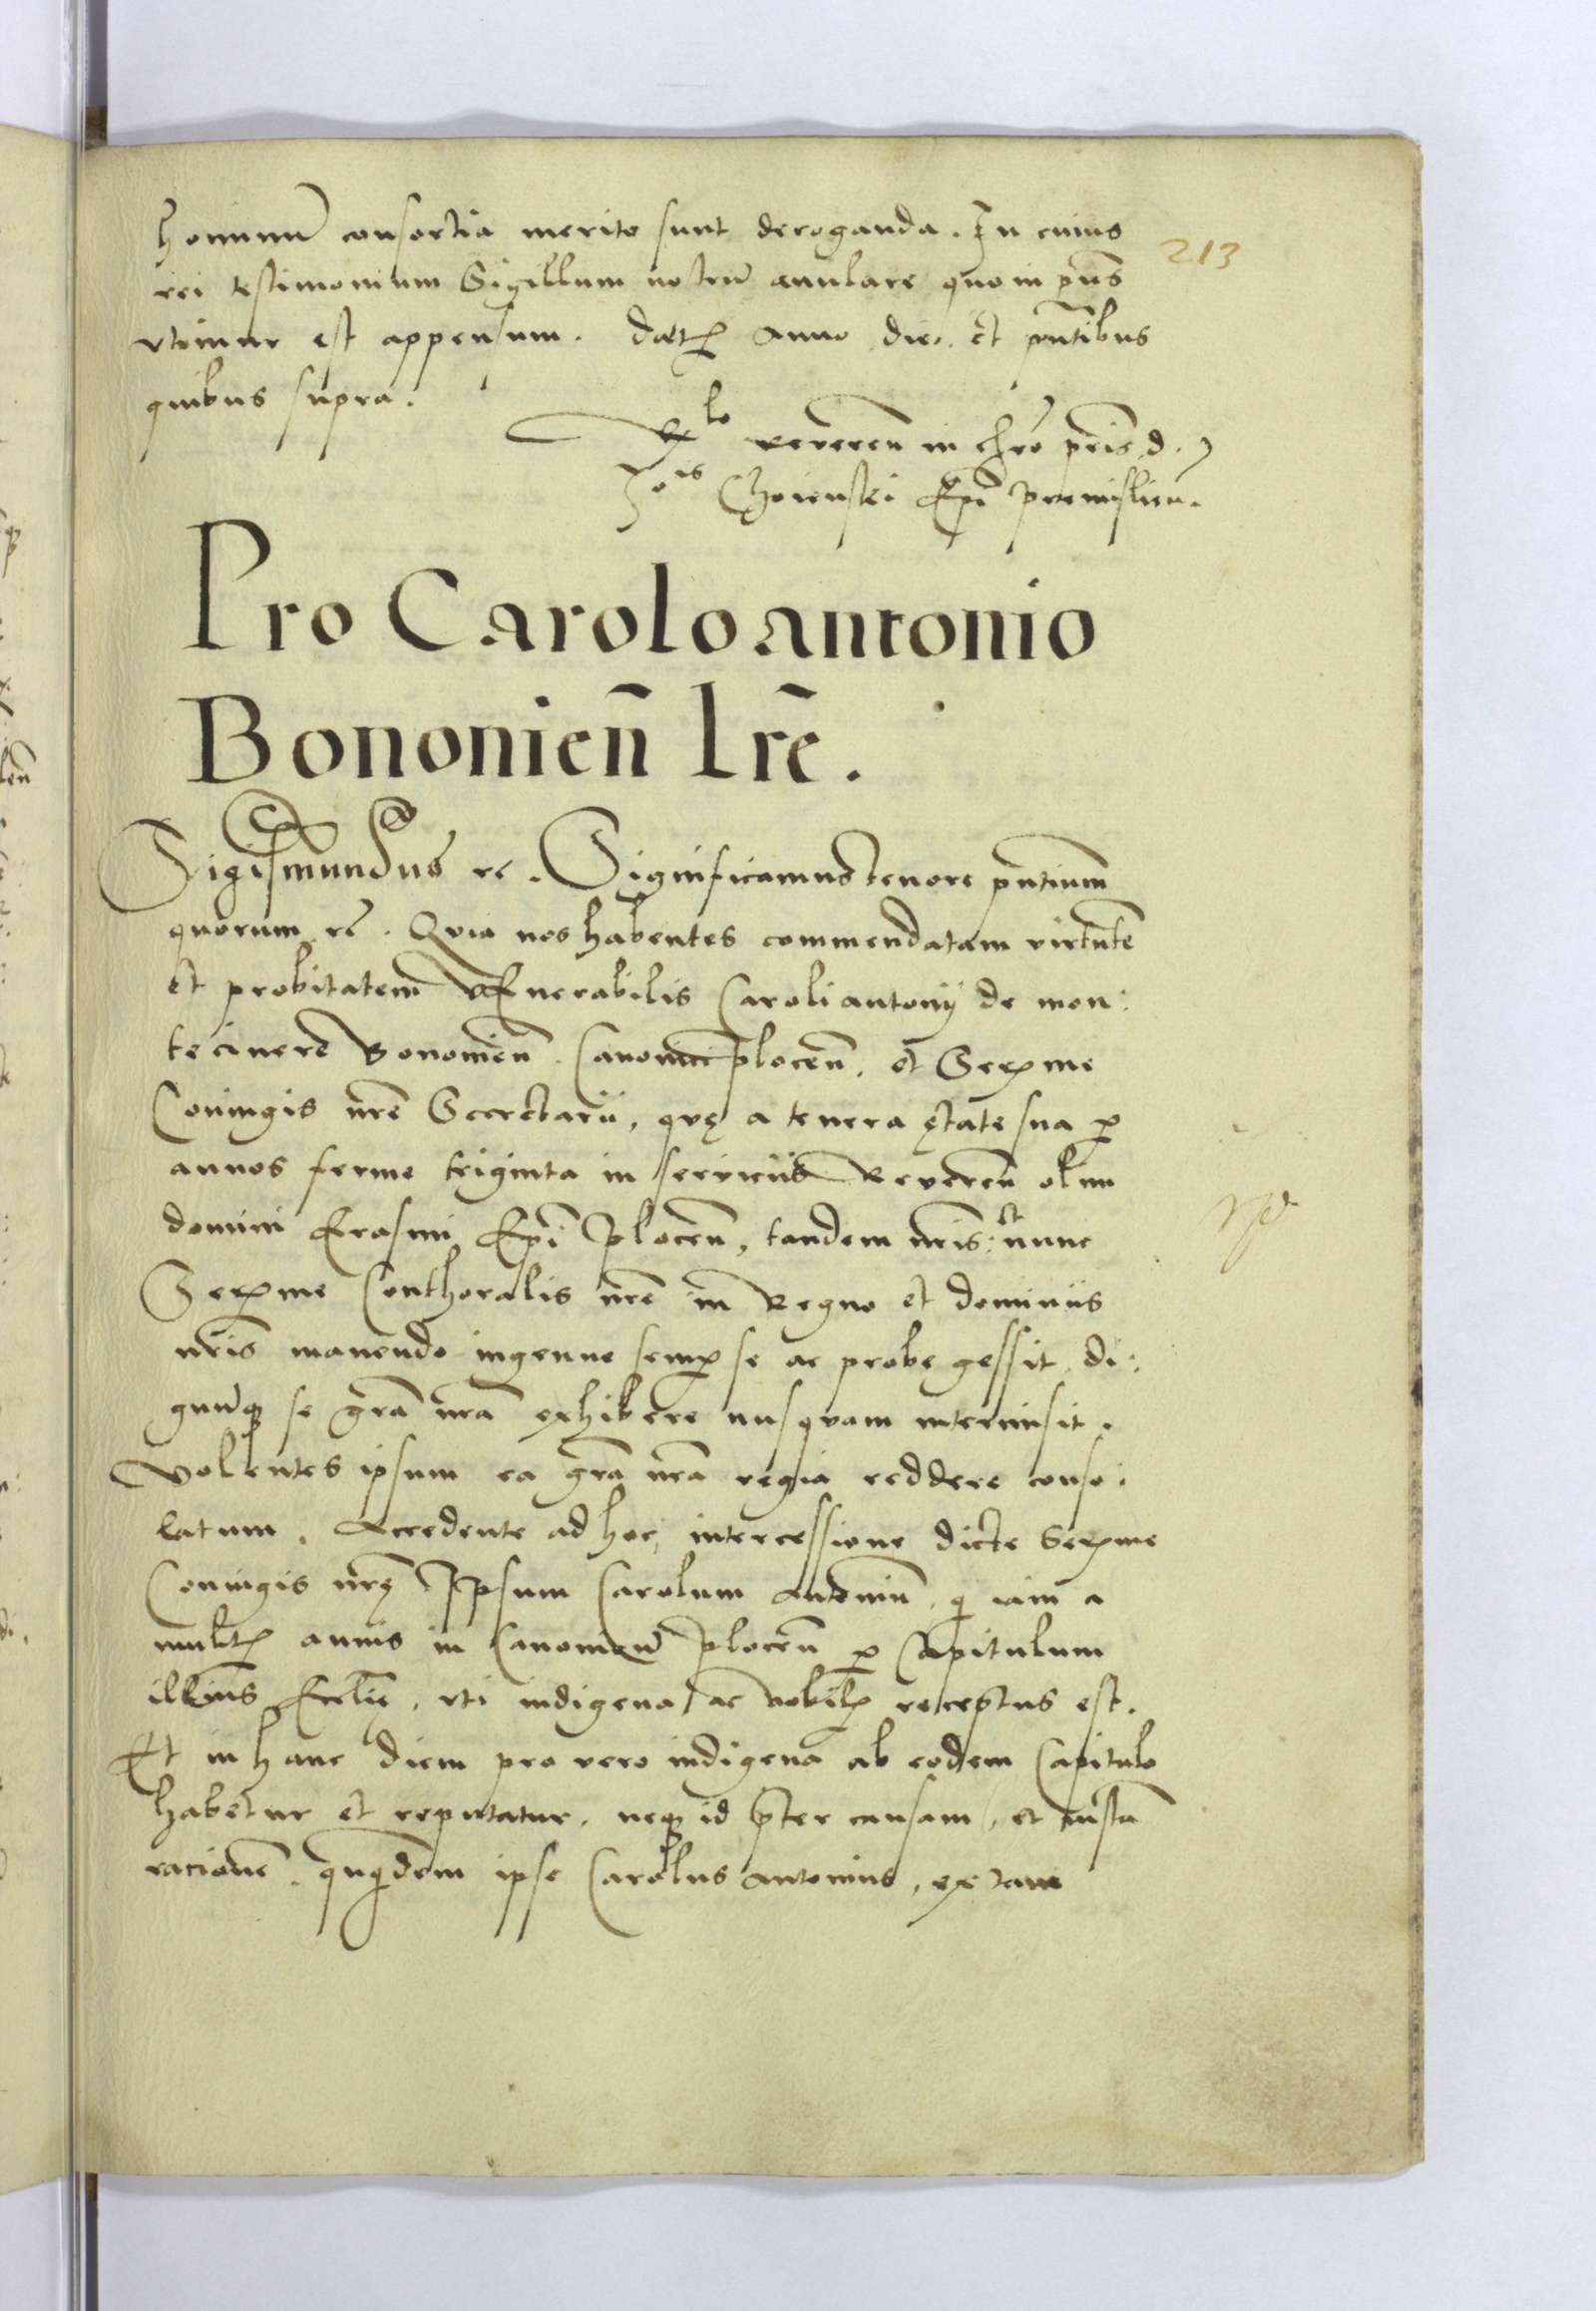 hominum̄ consortia merito sunt deroganda. In cuius
213
rei testimonium Sigillum nostrū anulare quo in p̄ns
vtimur est appensum. Datꝭ Anno die. et pn̄tibus
quibus supra.
Rlo reveren̄ in chr̄o pr̄is d.
Jois Choienski Ep̄i premislien̄.
Pro Carolo antonio
Bononien̄ lr̄e.
Sigismundus rc. Significamus tenore pn̄tium̄
quorum rc̄. Quia nos habentes commendatam virtutē
et probitatem VEnerabilis Caroli antonij de mon:
te cinere Bononien̄. Canonici plocen̄. et Serꝭme
Coniugis nr̄e Secretarii, quę a tenera ętate sua ꝑ
annos ferme triginta in servicijs Reveren̄ olim
domini Erasmi Ep̄i plocen̄, tandem nr̄is: et nunc
Serꝭme Conthoralis nr̄e in Regno et dominijs
nr̄is manendo ingenue semꝑ se ac probe gessit. di:
gnūqꝫ se gr̄a nr̄a exhibere nusquam intermisit.
Volentes ipsum ea gr̄a nr̄a regia reddere conso:
latum. Accedente ad hoc, intercessione dicte Serꝭme
Coniugis nr̄ę Ipsum Carolum Antoniū. qi iam a
multꝭ annis in Canonicū plocen̄ ꝑ Capitulum
illius Eccl̄ie. vti indigena ac nobilꝭ receptus est.
Et in hanc diem pro vero indigena ab eodem Capitulo
habetur et reputatur. neqꝫ id p̄ter causam, et iustā
racionē. quqidem ipse Carolus Antonius, ex tam